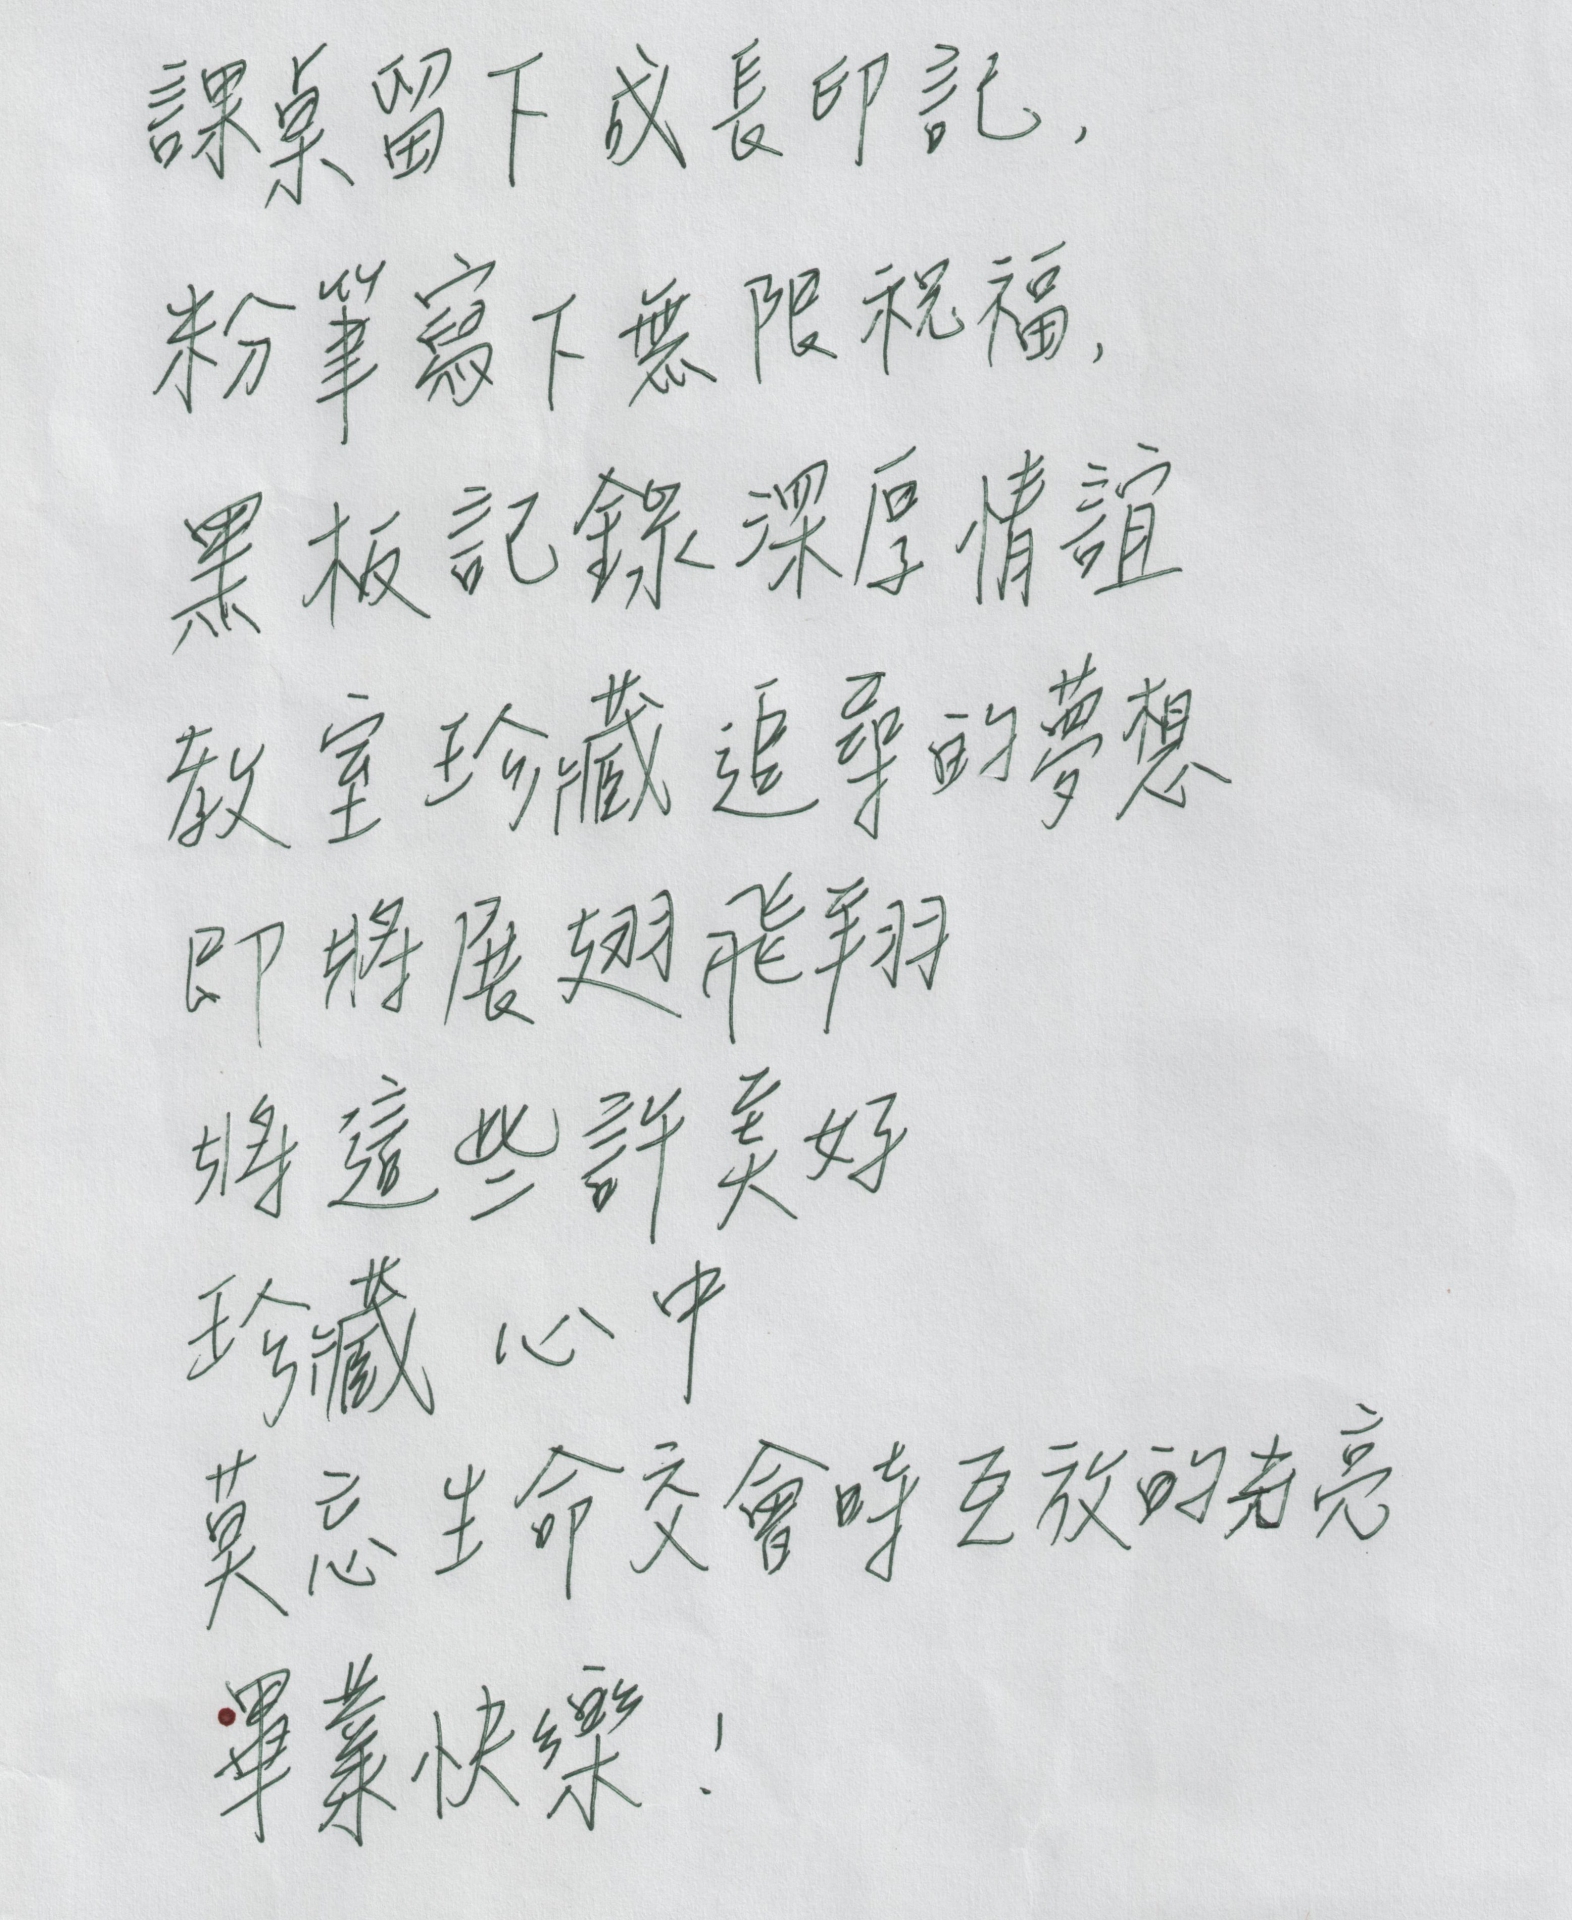 課桌留下成長印記，
粉筆寫下無限祝福，
黑板記錄深厚情誼
教室珍藏追尋的夢想
即將展翅飛翔
將這些許美好
珍藏心中
莫忘生命交會時互放的光亮
畢業快樂！